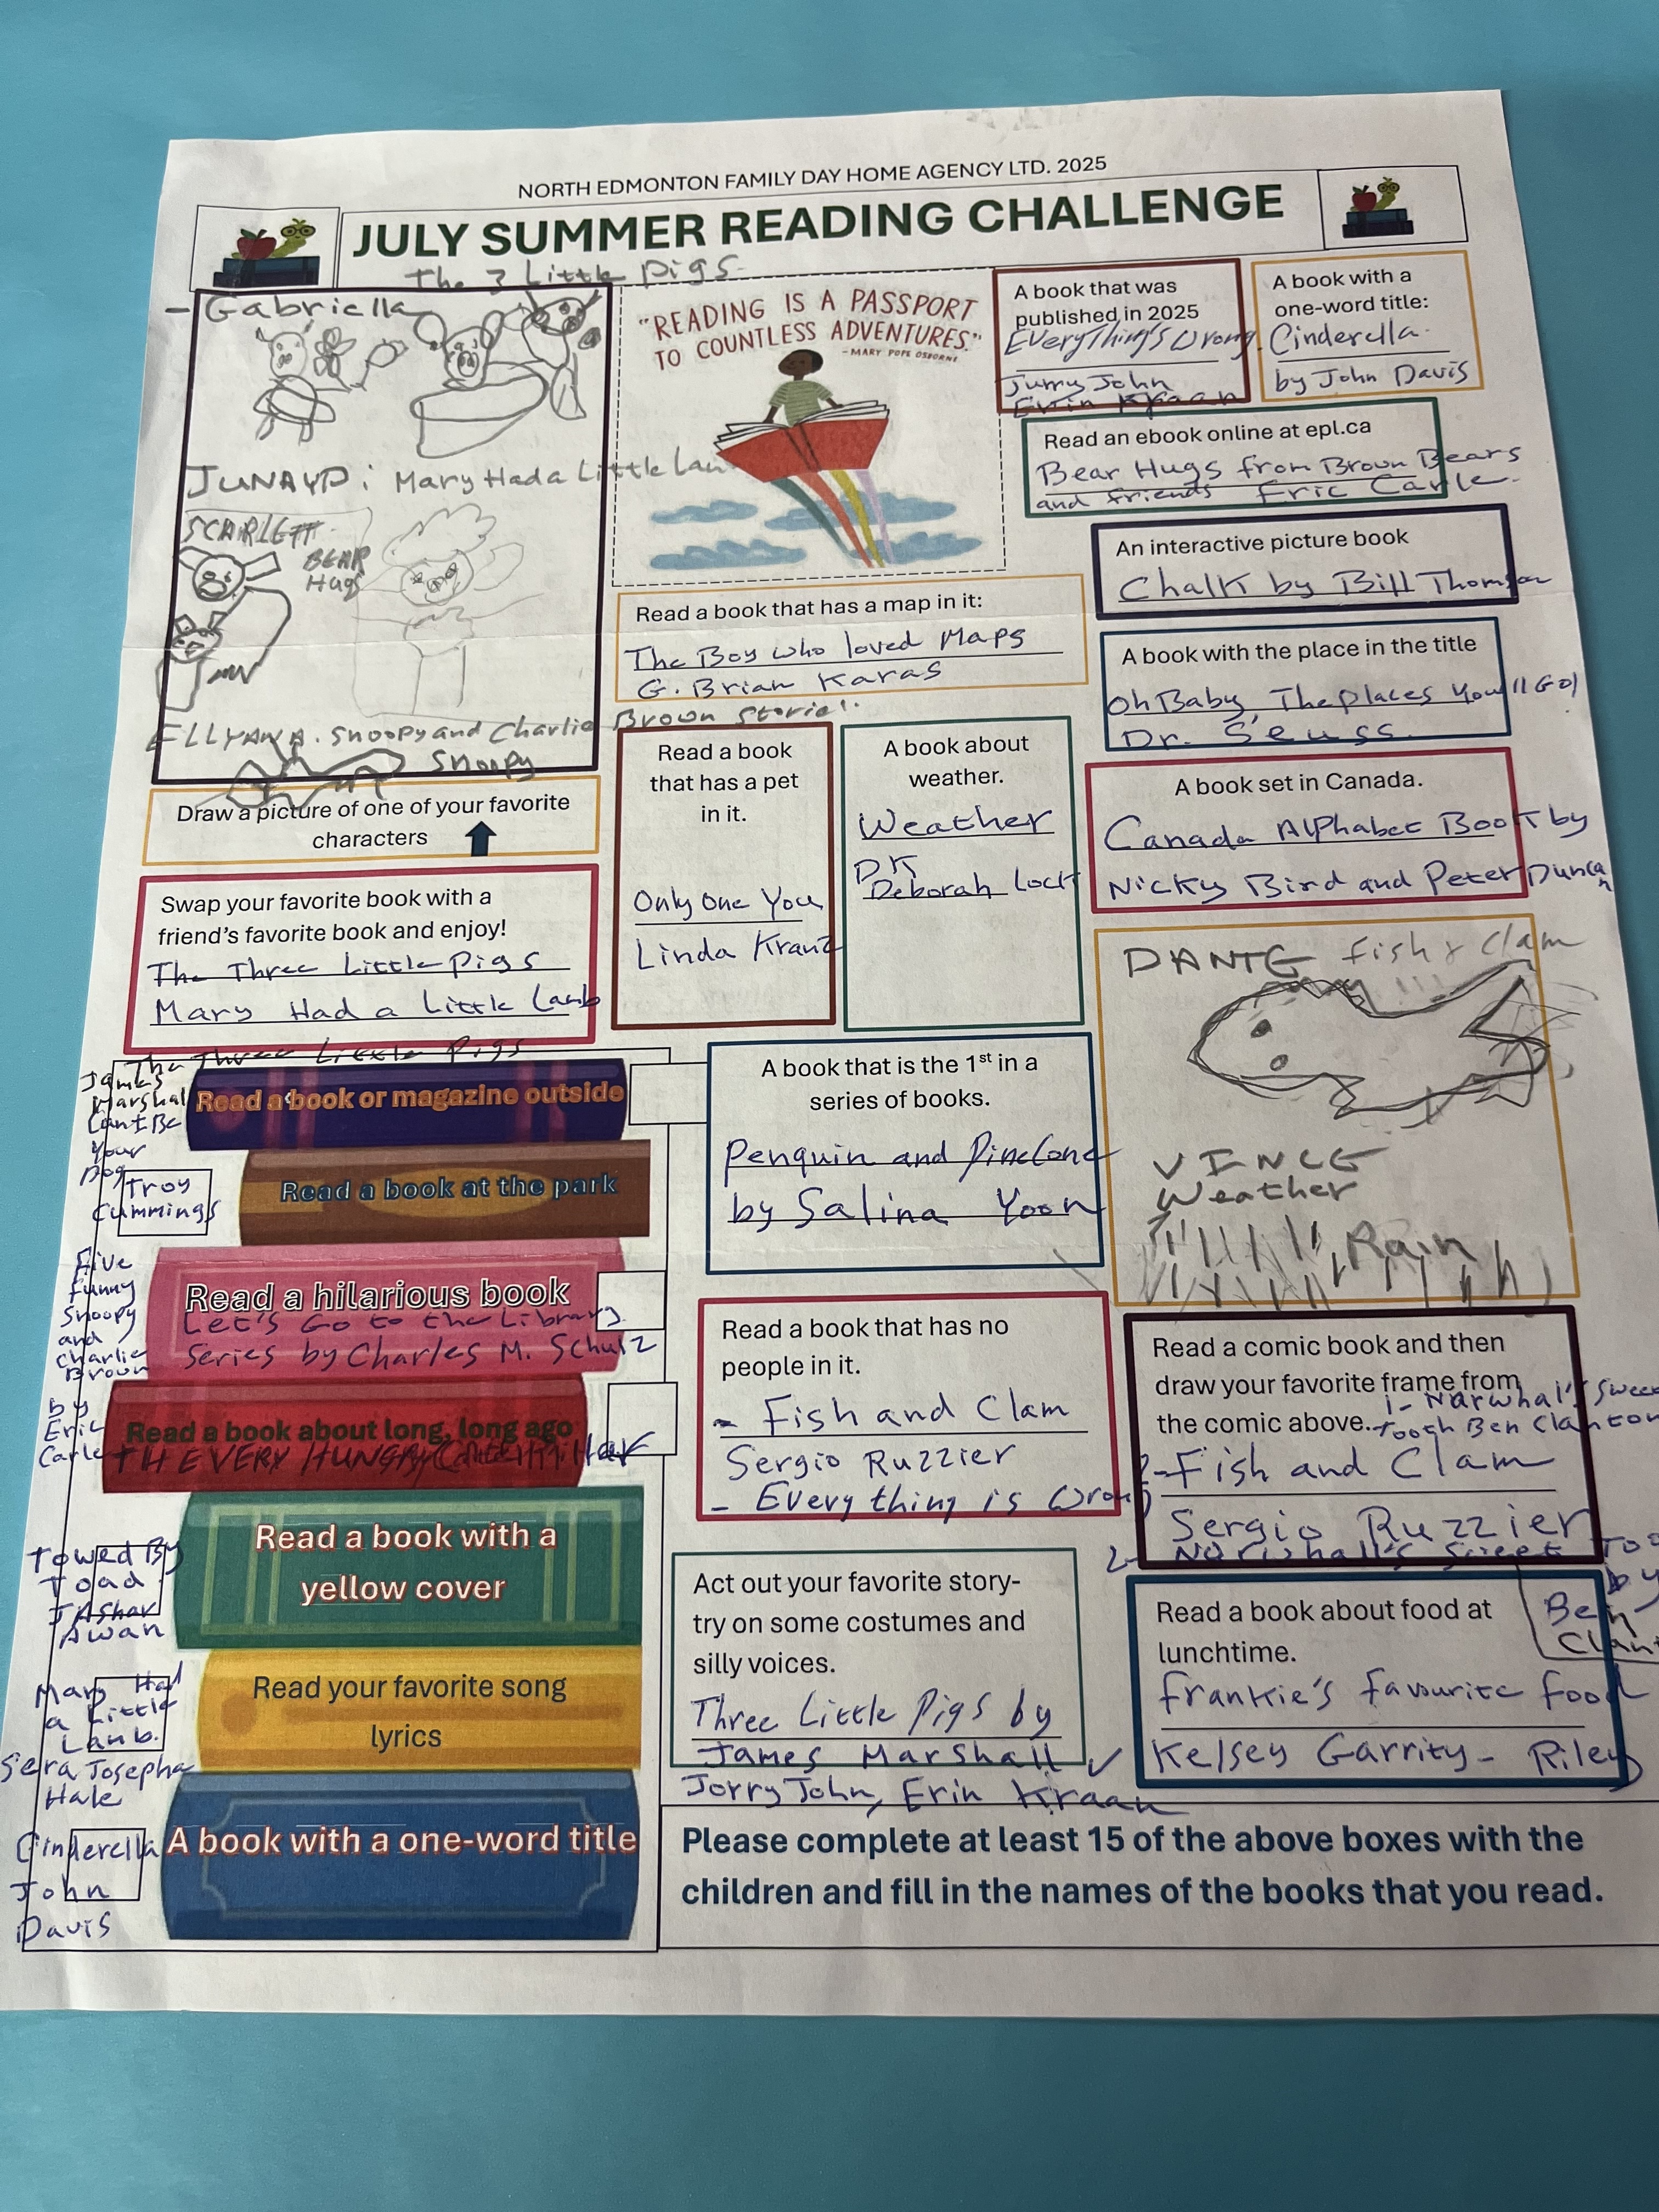 NORTH EDMONTON FAMILY DAY HOME AGENCY LTD. 2025
JULY SUMMER READING CHALLENGE
The 3 Little Pigs
- Gabriella
JUNAYD: Mary Had a Little Lam
SCARLETT
BEAR
Hugs
ELLYANA. Snoopy and Charlie Brown Stories.
Snoopy
Draw a picture of one of your favorite
characters
"READING IS A PASSPORT
TO COUNTLESS ADVENTURES."
-MARY POPE OSBORNE
A book that was
published in 2025
Everything's Wrong.
Jurry John
Errin Kraan
A book with a
one-word title:
Cinderella
by John Davis
Read an ebook online at epl.ca
Bear Hugs from Brown Bears
and friends Eric Carle.
An interactive picture book
Chalk by Bill Thomson
Read a book that has a map in it:
The Boy who loved Maps
G. Brian Karas
A book with the place in the title
Oh Baby, The places You'll Go!
Dr. Seuss
Read a book
that has a pet
in it.
Only One You
Linda Kranz
A book about
weather.
Weather
DK
Deborah Lock
A book set in Canada.
Canada Alphabet Book by
Nicky Bird and Peter Duncan
Swap your favorite book with a
friend's favorite book and enjoy!
The Three Little Pigs
Mary Had a Little Lamb
DANTE Fish & Clam
VINCE
Weather
Rain
The Three Little Pigs
James
Marshal
Cant Be
Your
Dog
Troy
Cummings
Read a book or magazine outside
Read a book at the park
Five
Funny
Snoopy
and
Charlie
Brown
Read a hilarious book
Let's Go to the Library
Series by Charles M. Schulz
By
Eric
Carle
Read a book about long, long ago
THE VERY HUNGRY Caterpillar
Towed By
Toad
JAShar
Awan
Read a book with a
yellow cover
Mary Had
a Little
Lamb.
Sera Josepha
Hale
Read your favorite song
lyrics
Cinderella
John
Davis
A book with a one-word title
A book that is the 1st in a
series of books.
Penquin and Pinecone
by Salina Yoon
Read a book that has no
people in it.
- Fish and Clam
Sergio Ruzzier
- Everything is Wrong
Read a comic book and then
draw your favorite frame from
the comic above.
1- Narwhal's Sweet
Tooth Ben Clanton
2- Fish and Clam
Sergio Ruzzier
2- Narwhall's Sweet Too
by
Ben
Clant
Act out your favorite story-
try on some costumes and
silly voices.
Three Little Pigs by
James Marshall ✓
Jorry John, Erin Kraan
Read a book about food at
lunchtime.
frankie's favourite food
Kelsey Garrity - Riley
Please complete at least 15 of the above boxes with the
children and fill in the names of the books that you read.